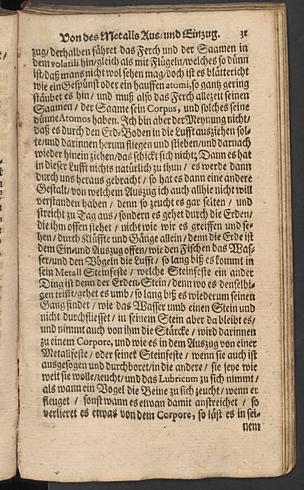 Von des Metalls Aus- und Einzug. 31
zug/ derhalben fähret das Ferch und der Saamen in
dem volatili hin/ gleich als mit Flügeln/ welches so dünn
ist/ daß mans nicht wol sehen mag/ doch ist es blättericht
wie ein Gespünst oder ein hauffen atomi, so gantz gering
stäubet es hin/ und muß also das Ferch allezeit seinen
Saamen/ der Saame sein Corpus, und solches seine
dünne Atomos haben. Ich bin aber der Meynung nicht/
daß es durch den Erd-Boden in die Lufft ausziehen sol-
te/ und darinnen herum fliegen und stieben/ und darnach
wieder hinein ziehen/ das schickt sich nicht; Dann es hat
in dieser Lufft nichts natürlich zu thun/ es werde dann
durch uns heraus gebracht/ so hat es dann eine andere
Gestalt/ von welchem Auszug ich auch allhie nicht will
verstanden haben/ denn so zeucht es gar selten/ und
streicht zu Tag aus/ sondern es gehet durch die Erden/
die ihm offen stehet/ nicht wie wir es greiffen und se-
hen/ durch Klüffte und Gänge allein/ denn die Erde ist
dem Ein- und Auszug offen/ wie den Fischen das Was-
ser/ und den Vögeln die Lufft/ so lang biß es kommt in
sein Metall Steinfeste/ welche Steinfeste ein ander
Ding ist denn der Erden-Stein/ denn wo es denselbi-
gen trifft/ gehet es umb/ so lang biß es wiederum seinen
Gang findet/ wie das Wasser umb einen Stein und
nicht durchfliesset/ in seinem Stein aber da bleibt es/
und nimmt auch von ihm die Stärcke/ wird darinnen
zu einem Corpore, und wie es in dem Auszug von einer
Metallfeste/ oder seiner Steinfeste/ wenn sie auch ist
ausgesogen und durchboret/ in die andere/ sie seye wie
weit sie wolle/ zeucht/ und das Lubricum zu sich nimmt/
als wann ein Vogel die Beine zu sich zeucht/ wenn er
fleuget/ sonst wann es etwan damit anstreichet/ so
verlieret es etwas von dem Corpore, so läst es in sei-
nem